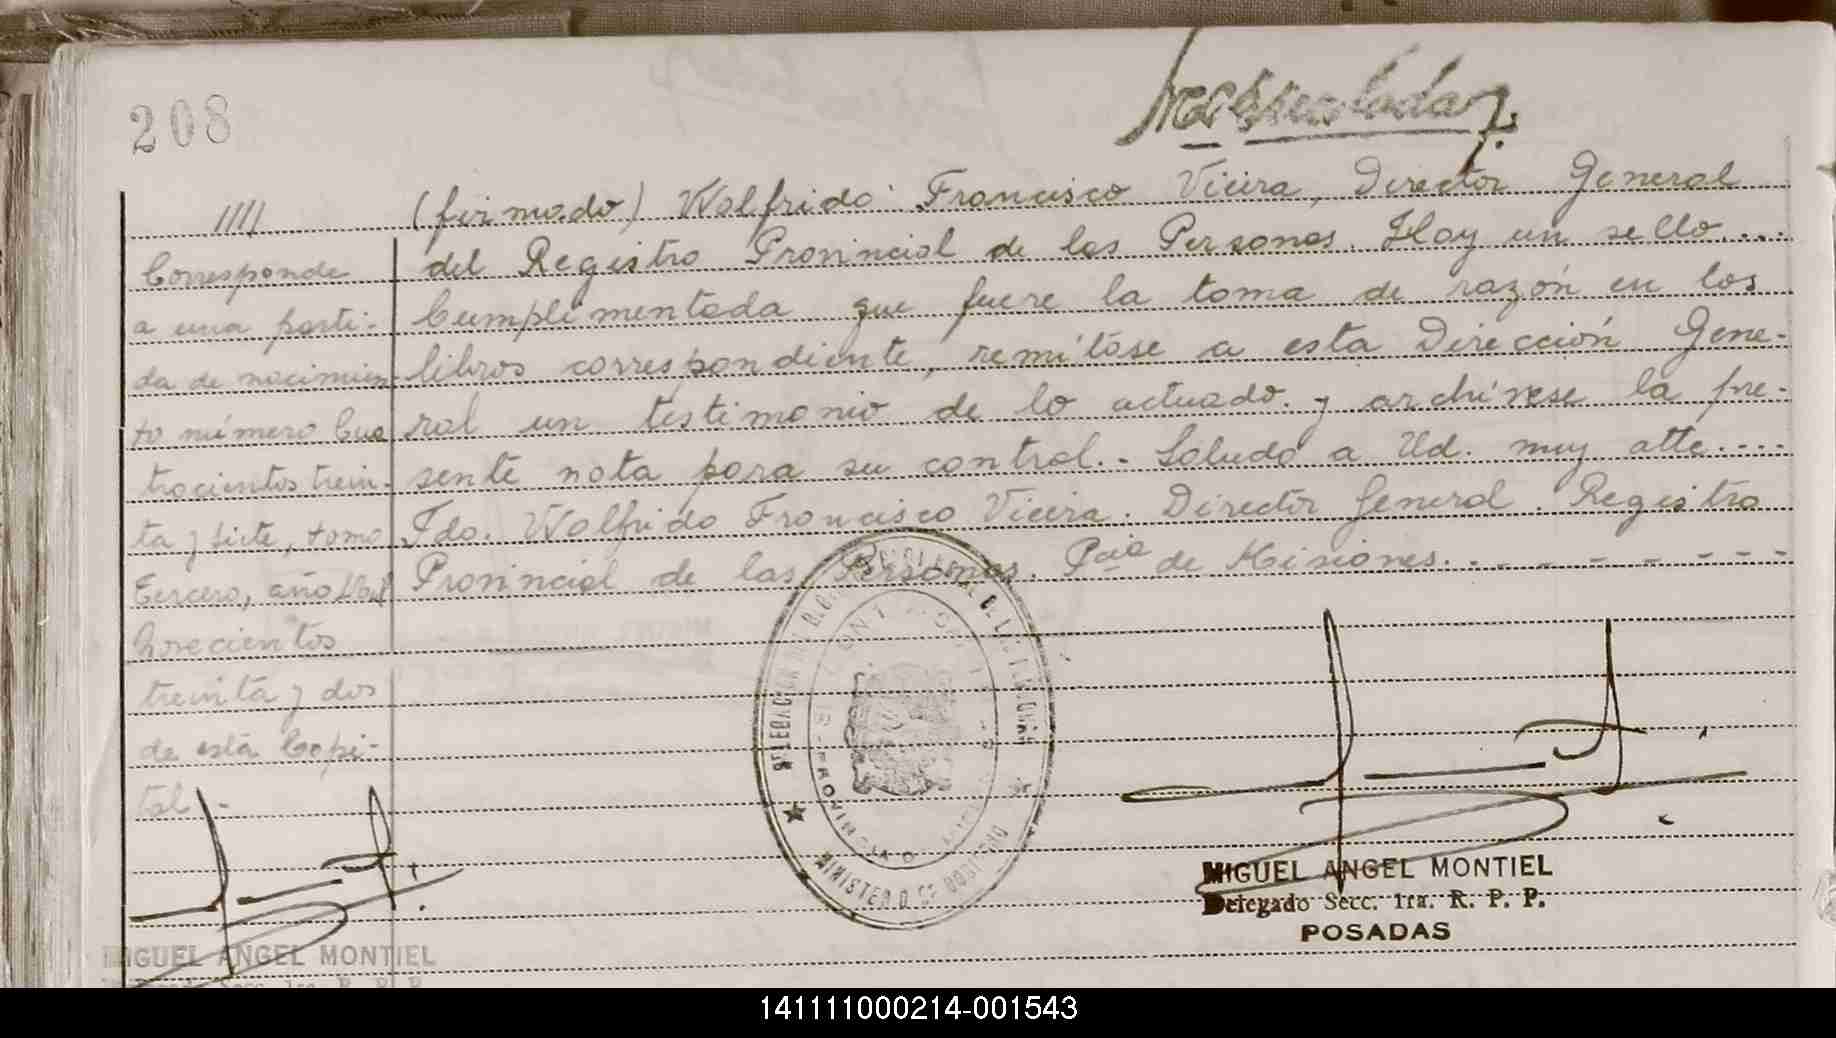 208
////
Corresponde
a una parti-
da de nacimien
to número Cua
trocientos trein-
ta y siete, tomo
tercero, año Mil
Novecientos
treinta y dos
de esta Capi-
tal.-
(firmado) Wolfrido Francisco Vieira, Director General
del Registro Provincial de las Personas. Hay un sello....
Cumplimentada que fuere la toma de razón en los
libros correspondiente, remítase a esta Dirección Gene-
ral un testimonio de lo actuado. y archívese la pre-
sente nota para su control.- Saludo a Ud. muy atte.----
Fdo. Wolfrido Francisco Vieira. Director General. Registro
Provincial de las Personas. Pcia de Misiones. - - - - - -
MINISTERIO DE GOBIERNO
MIGUEL ANGEL MONTIEL
Delegado Secc. 1ra. R. P. P.
POSADAS
MIGUEL ANGEL MONTIEL
Secc. 1ra. R. P. P.
141111000214-001543